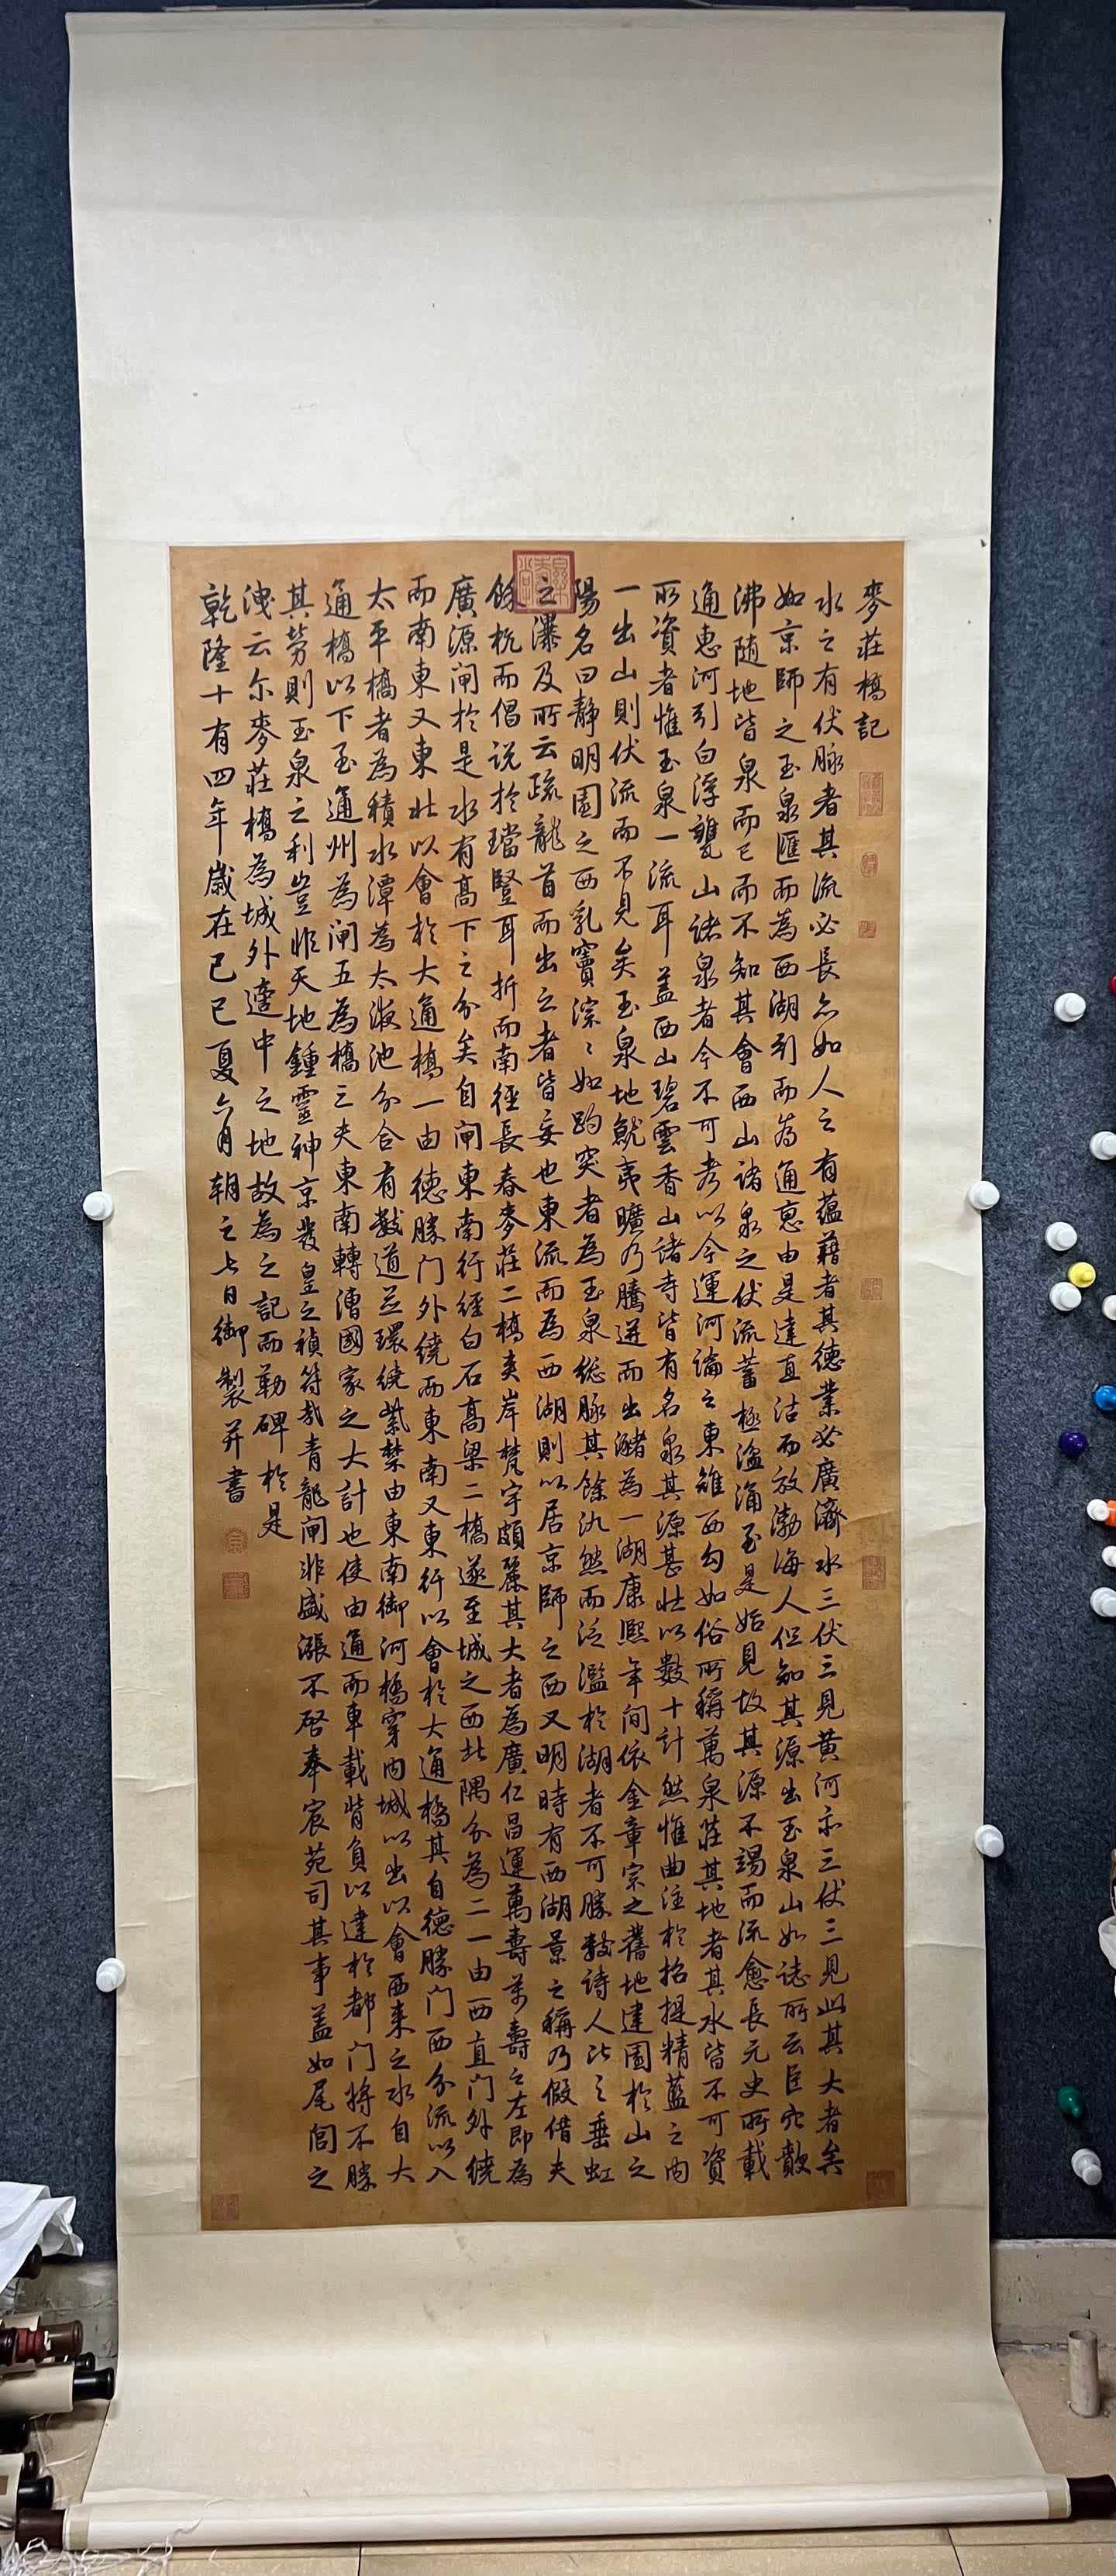 麥莊橋記
水之有伏脉者其流必長亦如人之有蘊藉者其德業必廣濟水三伏三見黄河亦三伏三見此其大者矣
如京師之玉泉匯而為西湖引而為通惠由是達直沽而放渤海人但知其源出玉泉山如誌所云巨穴歕
沸随地皆泉而已而不知其會西山諸泉之伏流蓄極湓湧至是始見故其源不竭而流愈長元史所載
通惠河引白浮甕山諸泉者今不可考以今運河論之東雉西勾如俗所稱萬泉莊其地者其水皆不可資
所資者惟玉泉一流耳蓋西山碧雲香山諸寺皆有名泉其源甚壯以數十計然惟曲注於招提精藍之内
一出山則伏流而不見矣玉泉地就夷曠乃騰迸而出瀦為一湖康熙年間依金章宗之舊地建園於山之
陽名曰静明園之西乳竇淙〻如趵突者為玉泉総脉其餘氿然而泛濫於湖者不可勝数詩人比之垂虹
之瀑及所云疏龍首而出之者皆妄也東流而為西湖則以居京師之西又明時有西湖景之稱乃假借夫
餘杭而倡说於璫豎耳折而南徑長春麥莊二橋夹岸梵宇頗麗其大者為廣仁昌運萬壽万壽之左即為
廣源闸於是水有髙下之分矣自闸東南行經白石高梁二橋遂至城之西北隅分為二一由西直门外繞
而南東又東壯以會於大通橋一由德勝门外繞而東南又東行以會於大通橋其自德勝门西分流以入
太平橋者為積水潭為太液池分合有数道並環繞紫禁由東南御河橋穿内城以出以會西来之水自大
通橋以下至通州為闸五為橋三夫東南轉漕國家之大計也使由通而車載背負以達於都门将不勝
其勞則玉泉之利豈非天地鍾靈神京發皇之禎符哉青龍闸非盛漲不啓奉宸苑司其事蓋如尾閭之
洩云尔麥莊橋為城外適中之地故為之記而勒碑於是
乾隆十有四年歲在己巳夏六月朔之七日御製并書